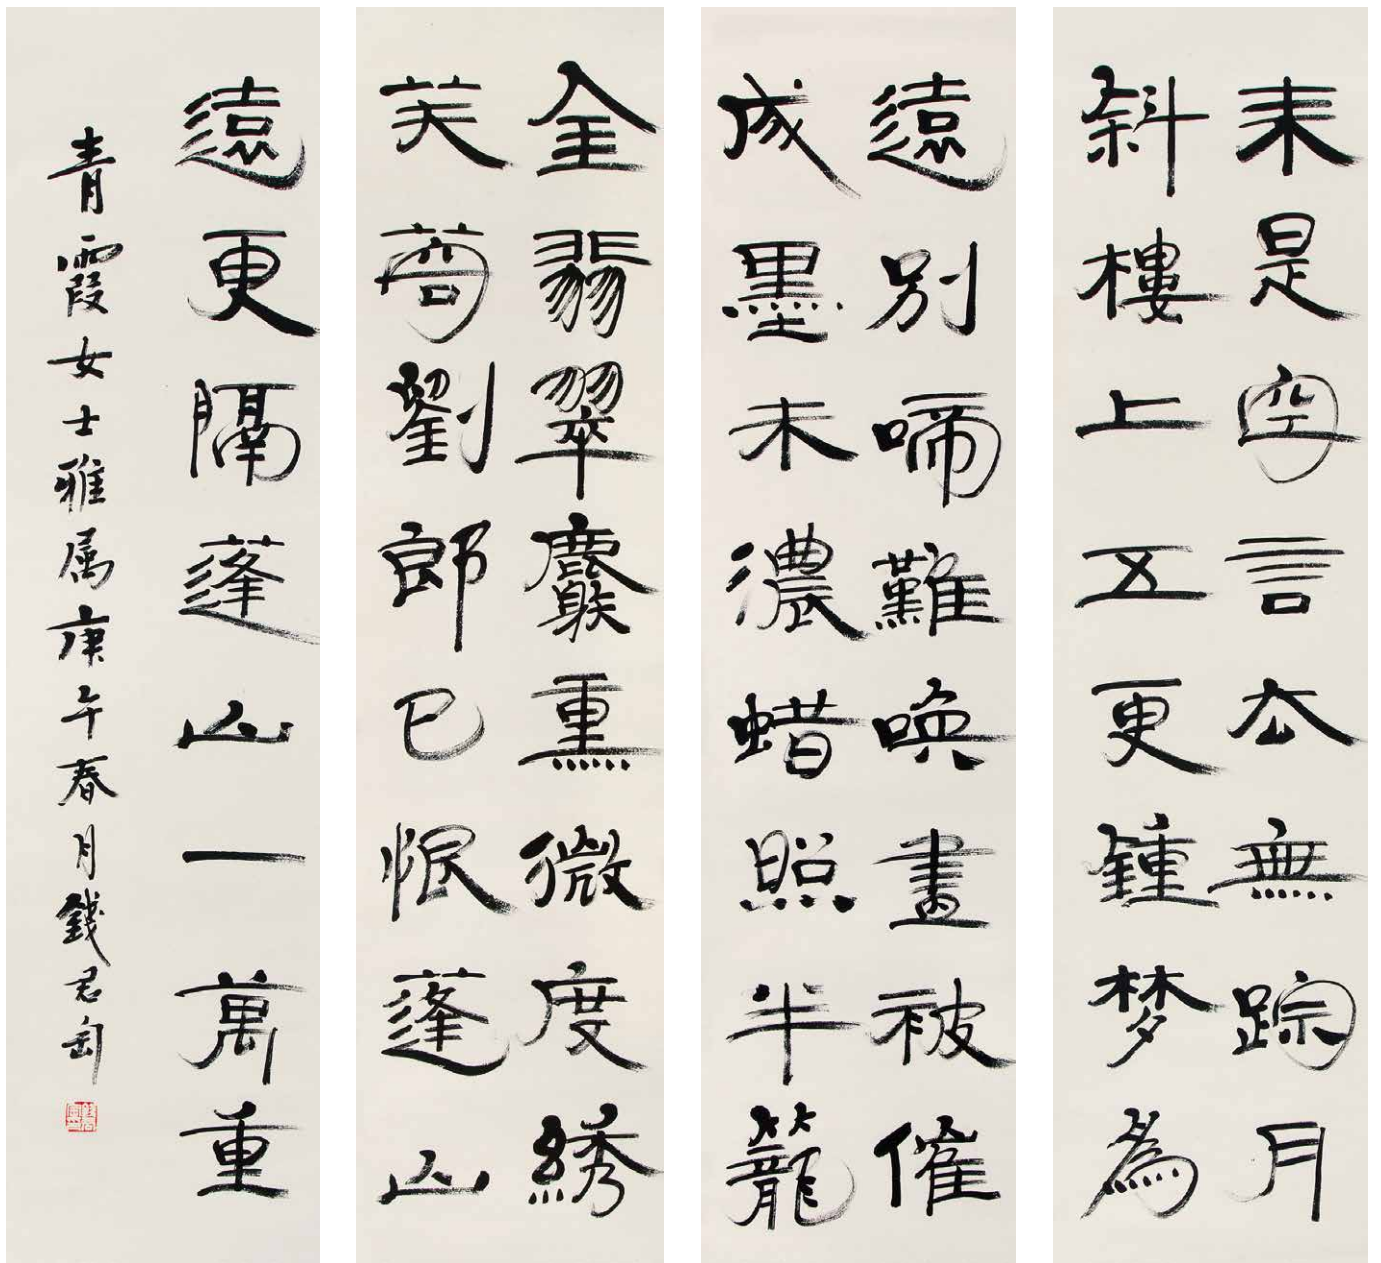 来是空言去無踪月
斜樓上五更鍾梦為
遠別啼難喚畫被催
成墨未濃蜡照半籠
金翡翠麝熏微度綉
芙蓉劉郎已恨蓬山
遠更隔蓬山一萬重
青霞女士雅属庚午春月錢君匋